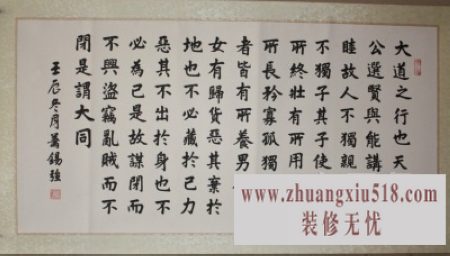 大道之行也天
公選賢與能講
睦故人不獨親
不獨子其子使
所終壯有所用
所長矜寡孤獨
者皆有所養男
女有歸貨惡其棄於
地也不必藏於己力
惡其不出於身也不
必為己是故謀閉而
不興盜竊亂賊而不
閉是謂大同
壬辰冬月蕭錫强
www.zhuangxiu518.com
装修无忧